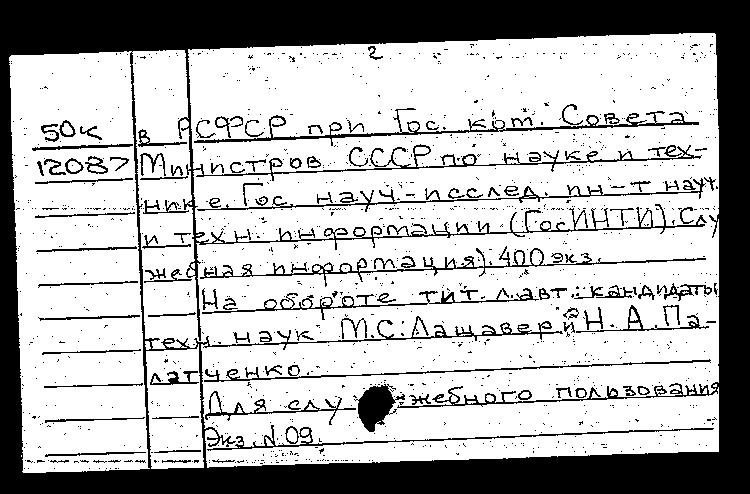 2
50к в РСФСР при Гос. ком. Совета
12087 Министров СССР по науке и тех-
нике. Гос. науч-исслед. ин-т науч.
и техн. информации (ГосИНТИ). Слу
жебная информация). 400 экз.
На обороте тит. л. авт.: кандидаты
техн. наук М.С. Лащавер и Н.А. Па-
латченко.
Для служебного пользования
Экз. N 09.